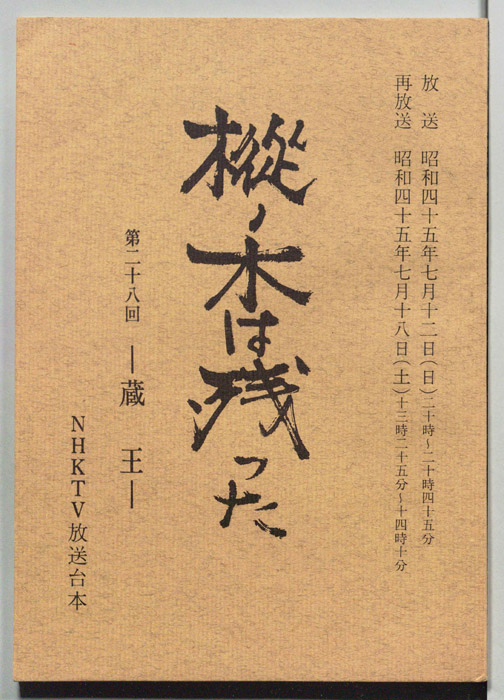 放　送　昭和四十五年七月十二日(日)二十時～二十時四十五分
再放送　昭和四十五年七月十八日(土)十三時二十五分～十四時十分
樅ノ木は残った
第二十八回　―蔵　王―
NHKTV放送台本